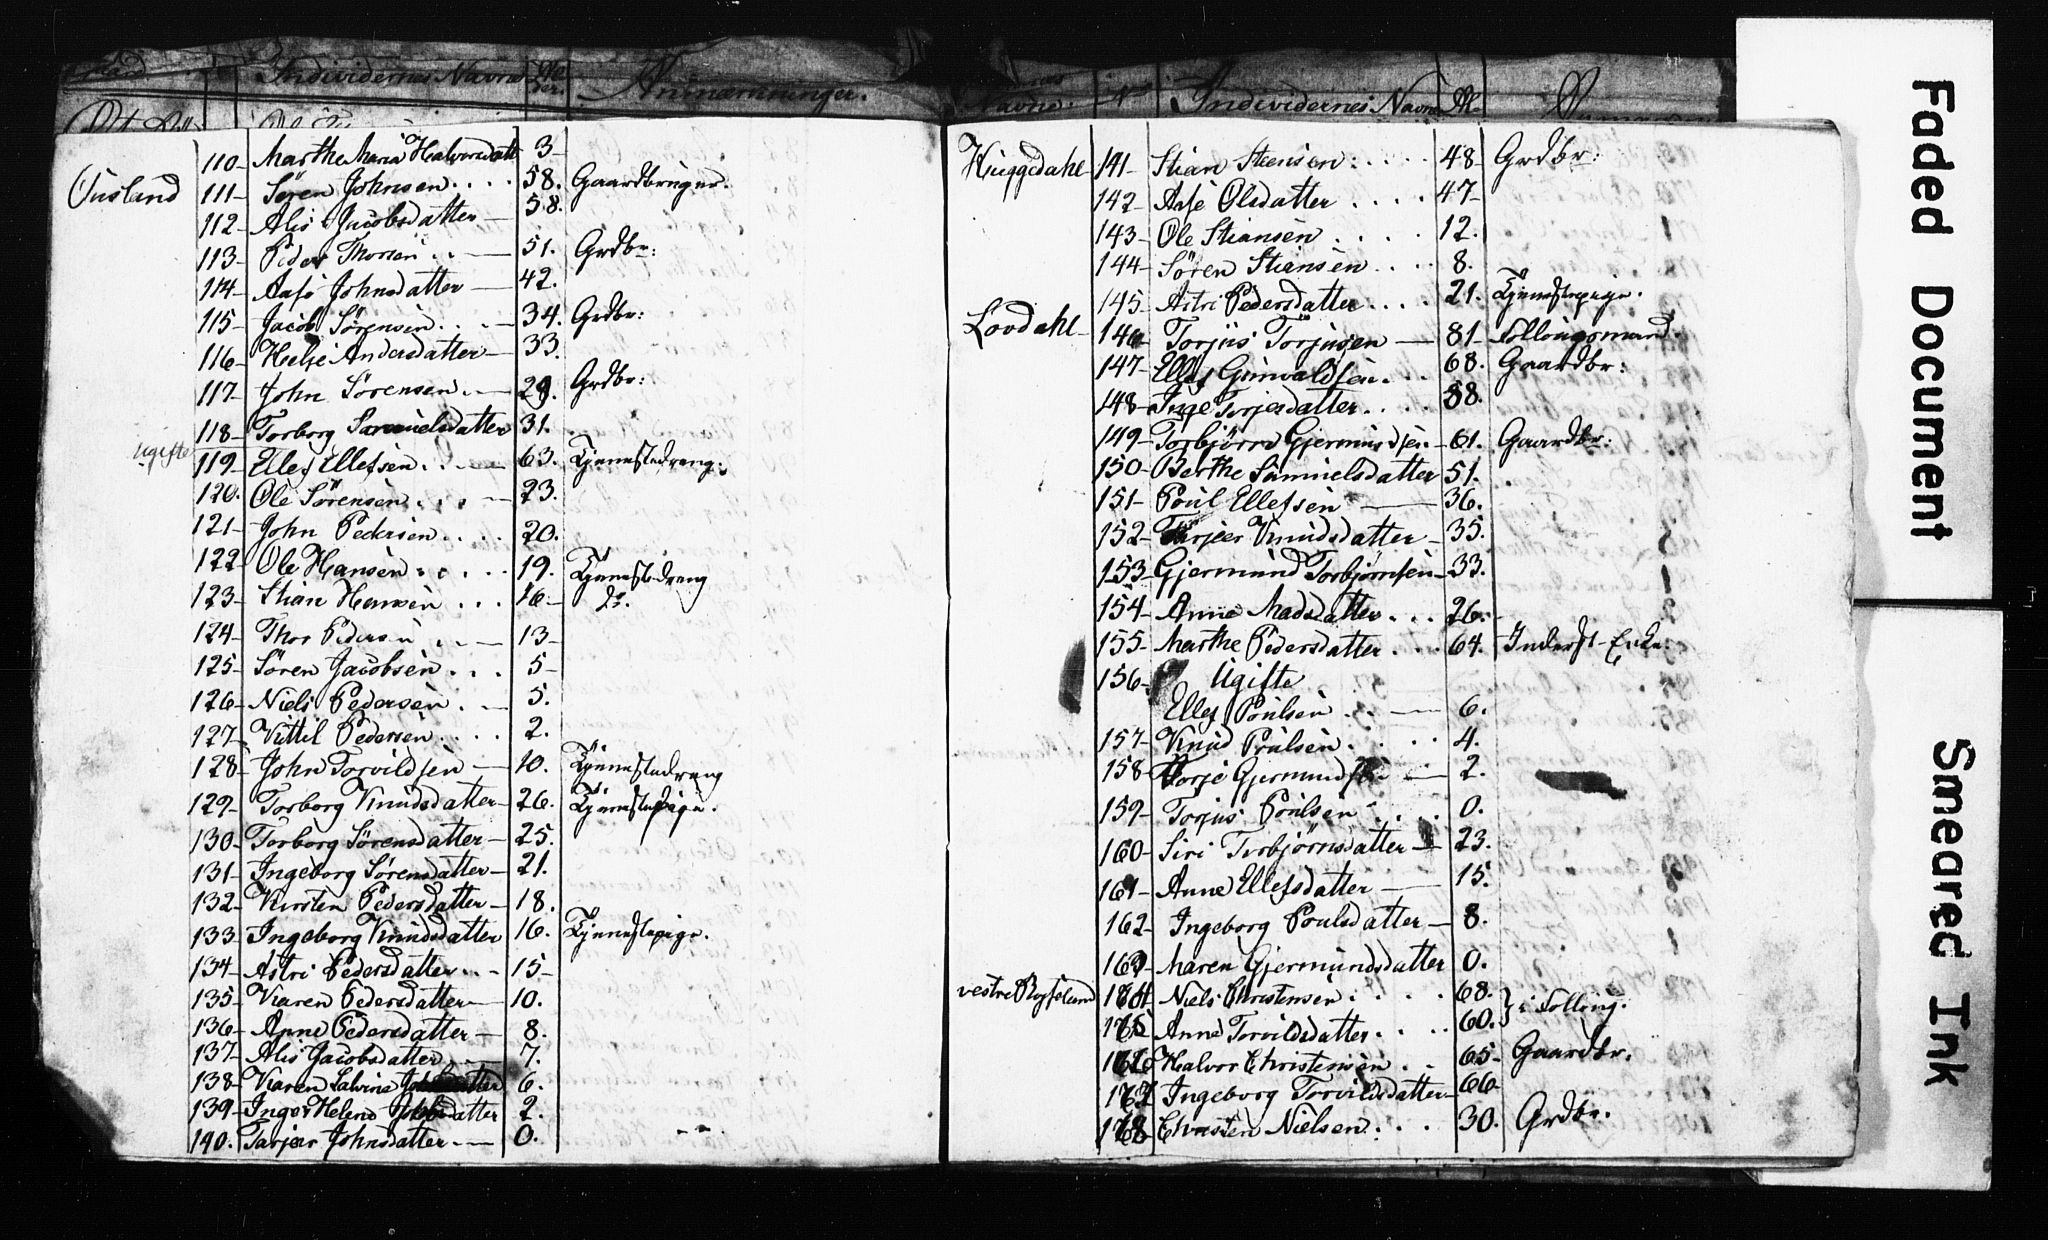 Individernes Navne
Anmærkninger.
110 Marthe Maria Halvorsdatt 3
Ousland 111 Sören Johnsen 58. Gaardbruger.
112 Alis Jacobsdatter 58.
113 Peder Thorsen 51. Grdbr:
114 Aase Johnsdatter 42.
115 Jacob Sørensen 34. Grdbr:
116 Helje Andersdatter 33.
117 John Sørensen 29. Grdbr:
118 Torborg Samuelsdatter 31.
ugifte 119 Ellef Ellefsen 63. Tjenestedreng.
120. Ole Sörensen 23.
121 John Pedersen 20.
122 Ole Hansen 19. Tjenestedreng
123 Stian Hansen 16 Do.
124 Thor Pedersen 13
125 Sören Jacobsen 5
126 Niels Pedersen 5.
127 Kittil Pedersen 2.
128 John Torvildsen 10. Tjenestedreng
129 Torborg Knudsdatter 26. Tjenestepige.
130 Torborg Sörensdatter 25.
131 Ingeborg Sörensdatter 21.
132 Kirsten Pedersdatter 18.
133 Ingeborg Knudsdatter 16. Tjenestepige.
134 Astri Pedersdatter 15
135 Karen Pedersdatter 10.
136 Anne Pedersdatter 8.
137 Alis Jacobsdatter 7.
138 Karen Salvine 6.
139 Inger Helene 2.
140. Tarjer Johnsdatter 0.
Navne: N Individernes Navne
Huggdahl 141 Stian Steensen 48 Grdbr:
142 Aase Olsdatter 47
143 Ole Stiansen 12.
144 Sören Stiansen 8.
145 Astri Pedersdatter 21. Tjenestepige.
Lovdahl 146 Torjus Torjusen 81 Follougsmand.
147 Ellef Gunvaldsen 68. Gaardbr:
148 Inge Torjesdatter 58.
149 Torbjörn Gjermundsen 61. Gaardbr:
150 Berthe Samuelsdatter 51.
151 Poul Ellefsen 36.
152 Tarjeer Knudsdatter 35.
153 Gjermund Torbjörnsen 33.
154 Anne Madsdatter 26.
155 Marthe Pedersdatter 64. Inderst Enke.
156 Ugifte
Ellef Poulsen 6.
157 Knud Poulsen 4.
158 Torje Gjermundsen 2.
159 Torjus Poulsen 0.
160 Siri Torbjörnsdatter 23.
161 Anne Ellefsdatter 15.
162 Ingeborg Poulsdatter 8.
163 Maren Gjermundsdatter 0.
vestre 164 Niels Christensen 68.
165 Anne Torvildsdatter 60. } i Folloug.
166 Halvor Christensen 65 Gaardbr.
167 Ingeborg Torvildsdatter 66
168 Christen Nielsen 30. Grdbr.
Faded Document
Smeared Ink